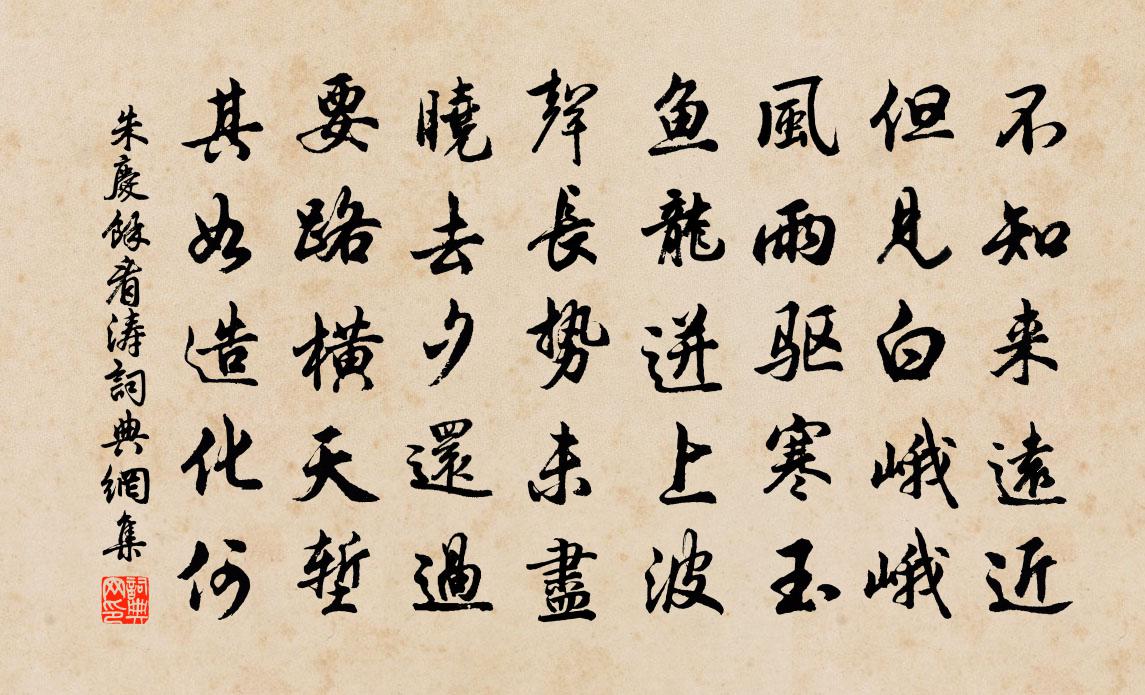 不知来遠近
但見白峨峨
風雨驱寒玉
鱼龍迸上波
聲長勢未盡
曉去夕還過
要路横天塹
其如造化何
朱慶餘看濤詞典網集
詞典網印